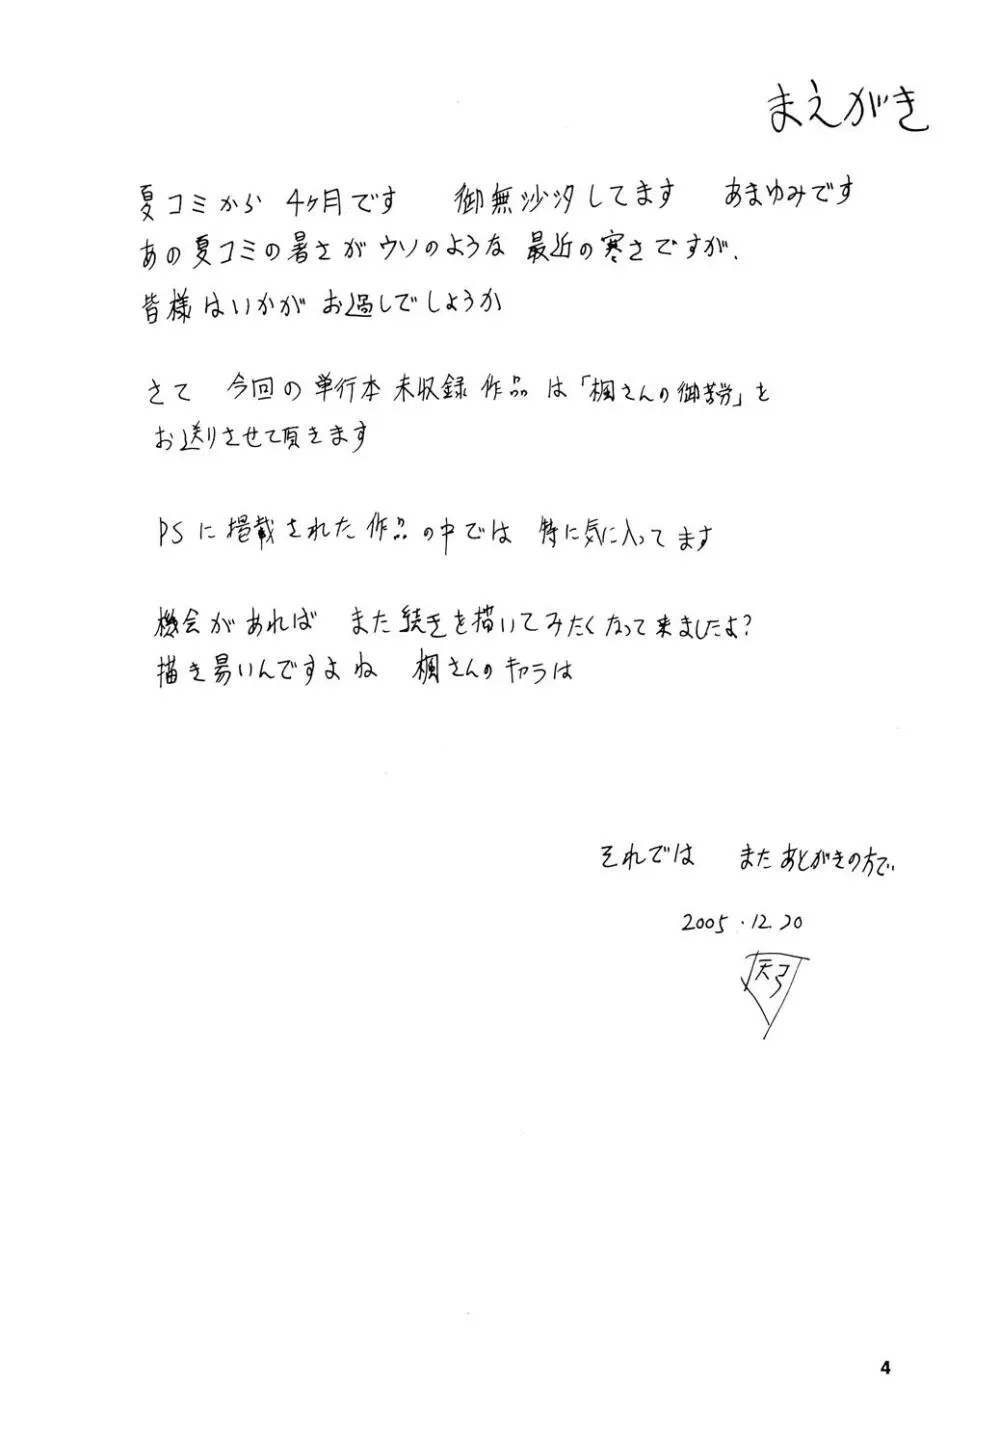 まえがき
夏コミから 4ヶ月です 御無沙汰してます あまゆみです
あの夏コミの暑さがウソのような 最近の寒さですが、
皆様はいかがお過しでしょうか
さて 今回の単行本未収録作品は「楓さんの御苦労」を
お送りさせて頂きます
PSに掲載された作品の中では 特に気に入ってます
機会があれば また続きを描いてみたくなって来ましたよ?
描き易いんですよね 楓さんのキャラは
それでは またあとがきの方で、
2005.12.20
天弓
4